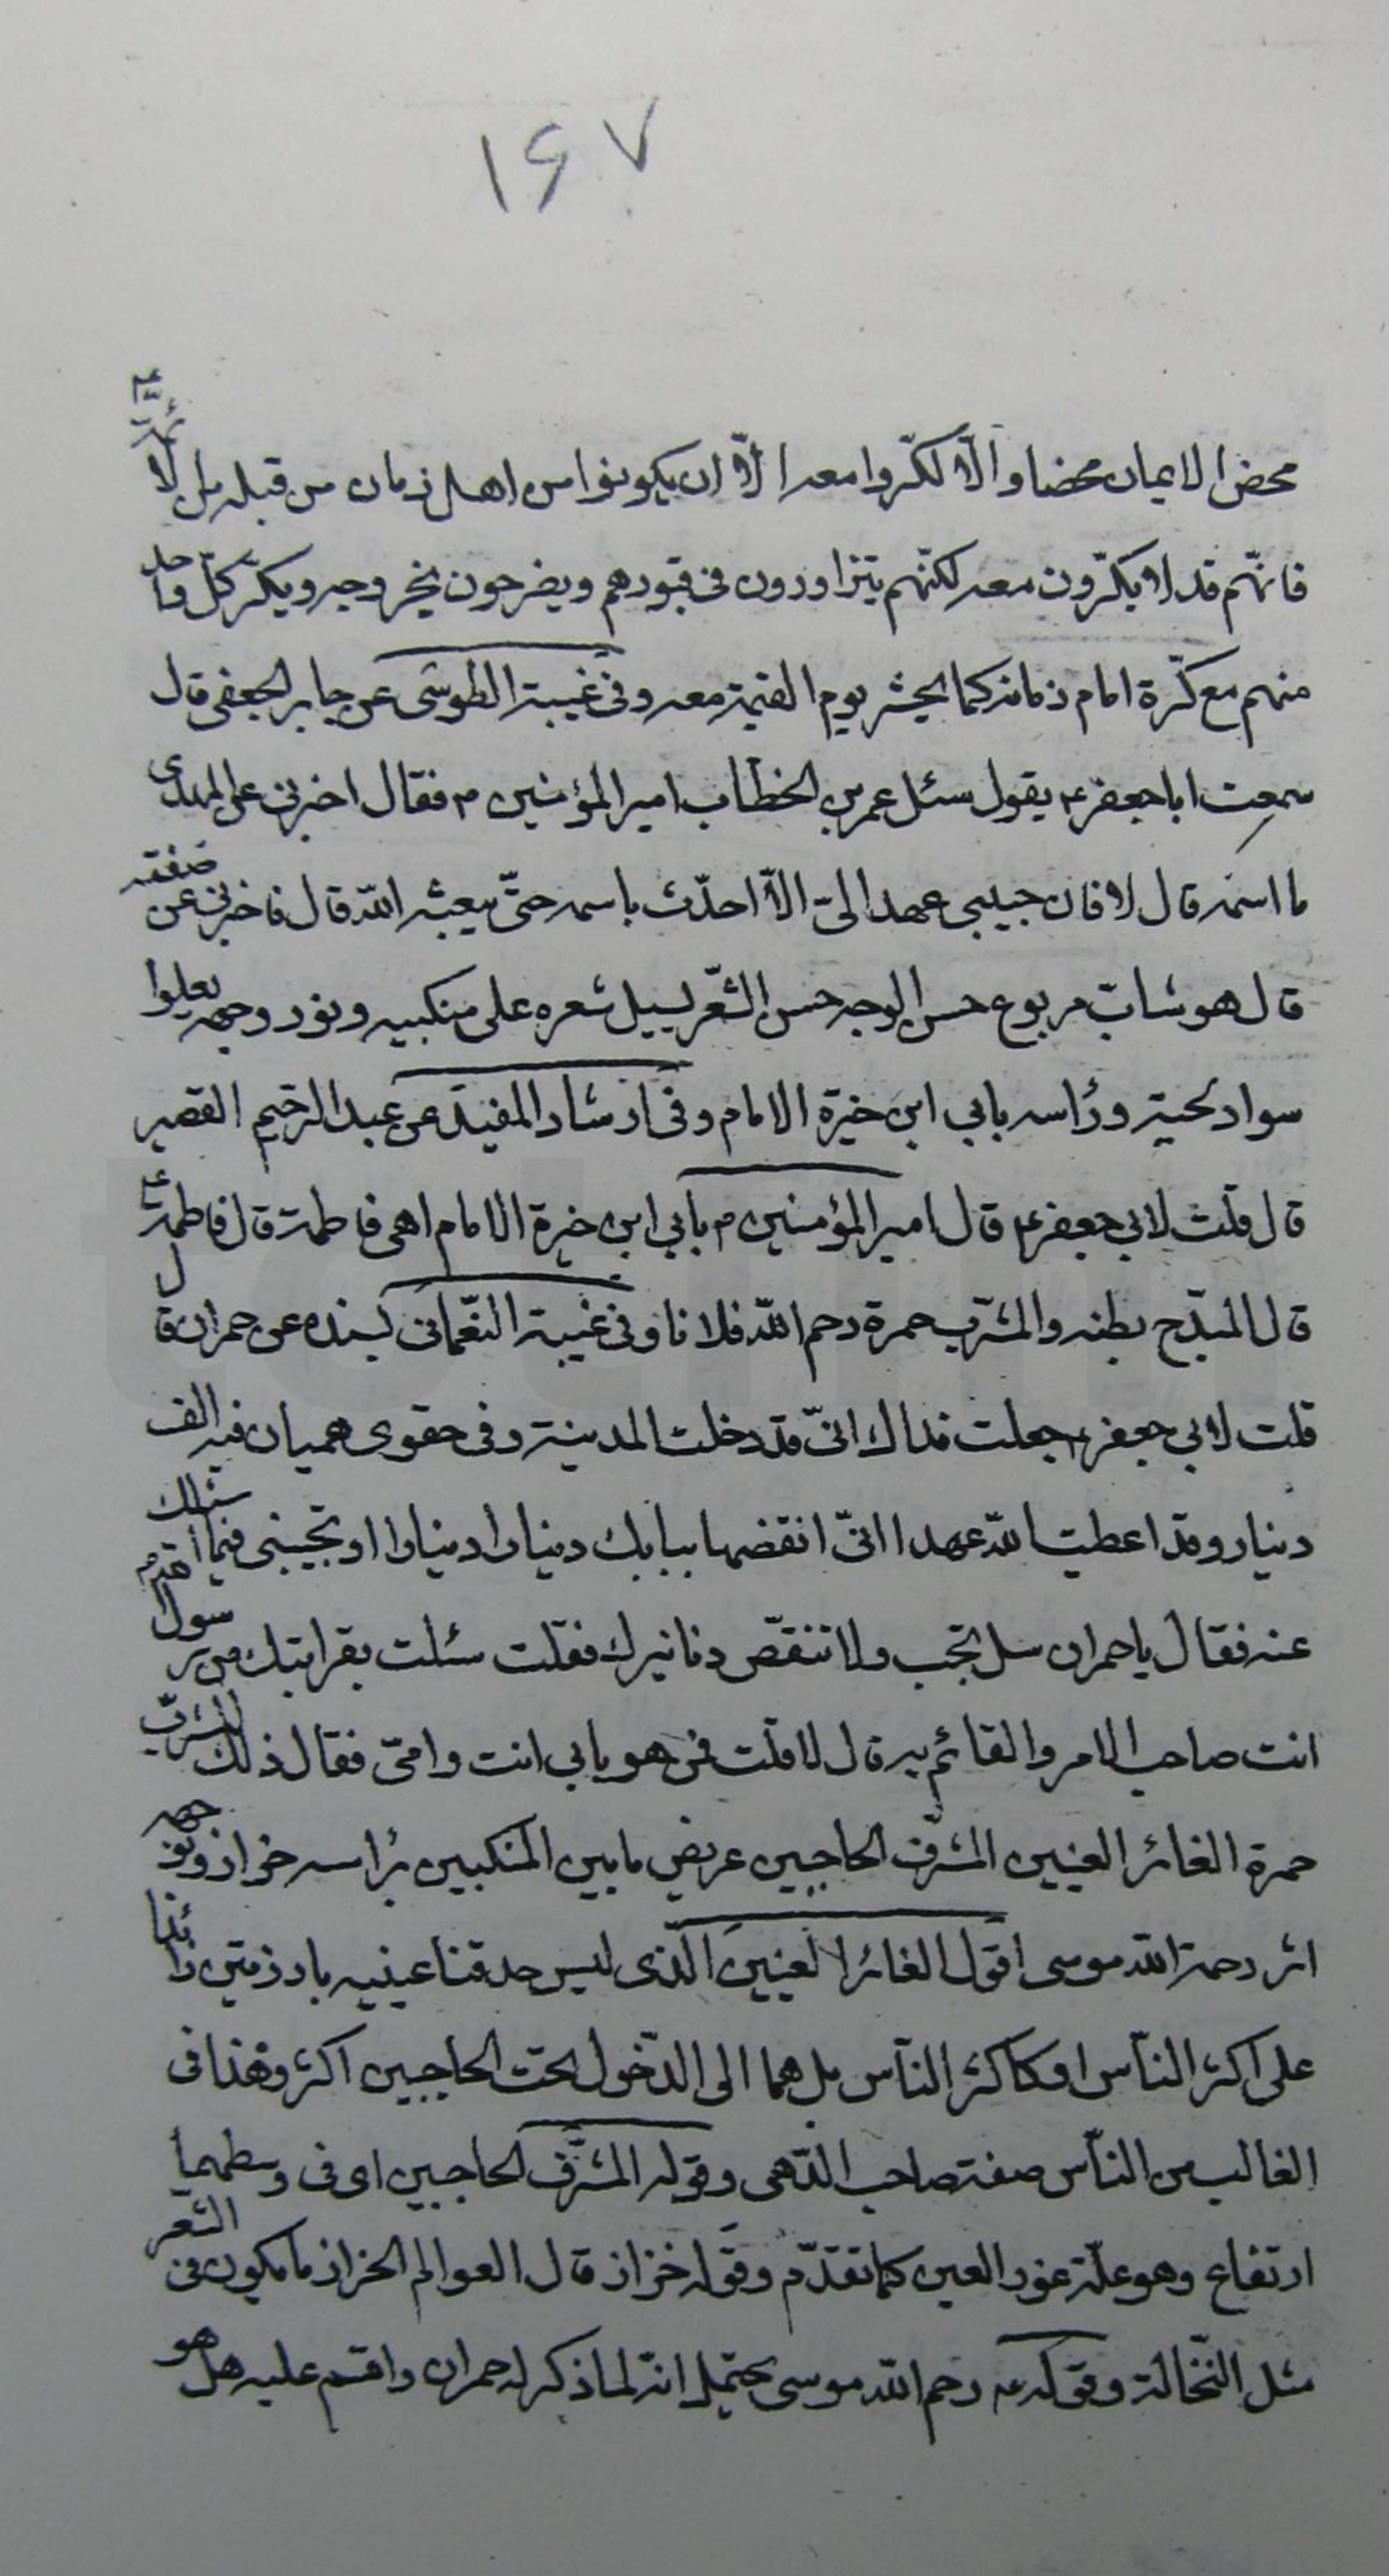 ۱۶۷
محض الايمان محضا والّا لكرّوا معه الّا ان يكونوا من اهل زمان من قبله من الائمة ع
فانهّم قد لا يكرّون معه لكنّهم يتزاورون فى قبورهم ويفرحون بخروجه ويكرّ كلّ واحد
منهم مع كرّة امام زمانه كما يحشر يوم القيمة معه وفى غيبة الطوسى عن جابر الجعفى قال
سمعت ابا جعفر ع يقول سئل عمر بن الخطاب امير المؤمنين م فقال اخبرنى عن المهدى
ما اسمه قال لا فان حبيبى عهد الىّ الّا احدّث باسمه حتّى يبعثه اللّه قال فاخبرنى عن صفته
قال هو شابّ مربوع حسن الوجه حسن الشّعر يسيل شعره على منكبيه ونور وجهه يعلوا
سواد لحيته ورأسه بابي ابن خيرة الامام وفى ارشاد المفيد عن عبد الرحيم القصير
قال قلت لابي جعفر ع قال امير المؤمنين م بابي ابن خيرة الامام اهى فاطمة قال فاطمة ع
قال المبدّح بطنه والمشرب حمرة رحم اللّه فلانا وفى غيبة النّعمانى بسنده عن حمران قال
قلت لابي جعفر ع جعلت فداك انىّ قد دخلت المدينة وفى حقوى هميان فيه الف
دينار وقد اعطيت للّه عهدا انىّ انفقها ببابك دينارا دينارا او تجيبنى فيما اسئلك
عنه فقال يا حمران سل تجب ولا تنفقّ دنانيرك فقلت سئلت بقرابتك من رسول
انت صاحب الامر والقائم به قال لا قلت فمن هو بابي انت وامى فقال ذلك المشرب
حمرة الغائر العينين المشرف الحاجبين عريض ما بين المنكبين برأسه خزاز وبوجهه
اثر رحمة اللّه موسى اقول الغائر العينين الّذى ليس حدقتا عينيه بارزتين زائدا
على اكثر النّاس او كاكثر النّاس بل هما الى الدّخول تحت الحاجبين اكثر وهذا فى
الغالب من النّاس صفة صاحب الدّهى وقوله المشرّف الحاجبين اى فى وسطهما
ارتفاع وهو علّة غور العين كما تقدّم وقوله خزاز قال العوالم الخزاز ما يكون فى الشعر
مثل النّخالة وقوله ع رحم اللّه موسى يحتمل انّه لما ذكر له حمران واقسم عليه هل هو